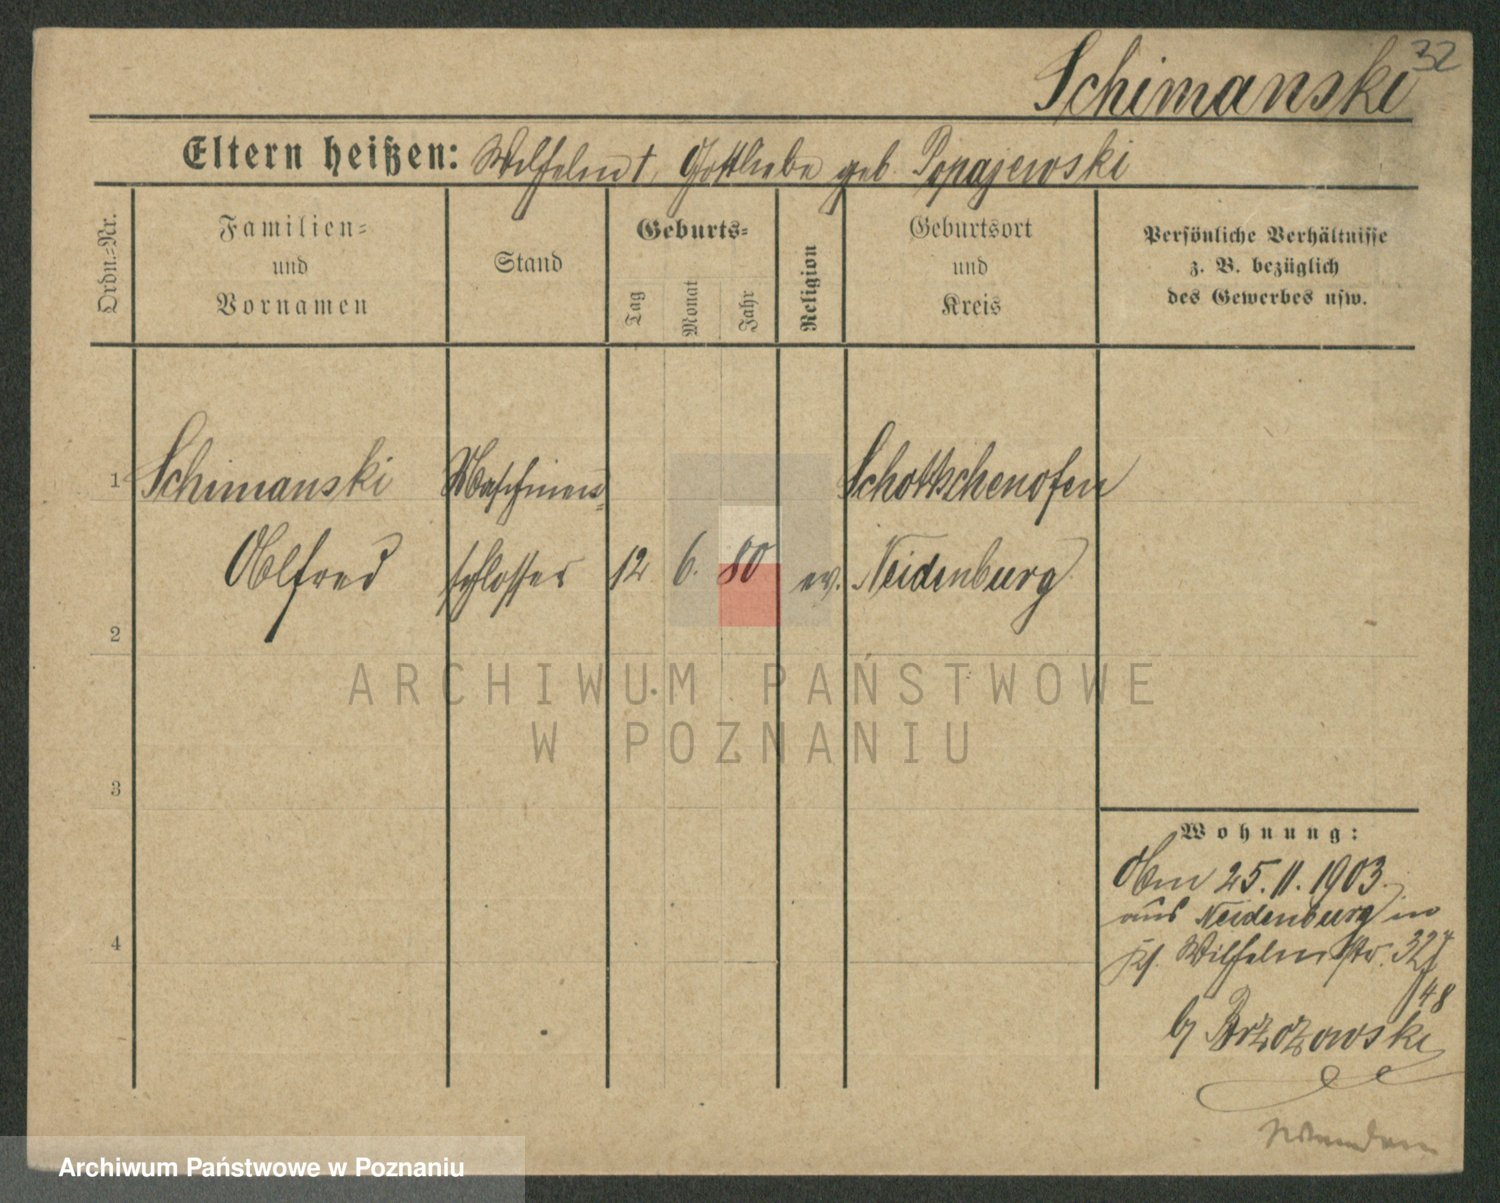 32
Schimanski
Eltern heißen: Wilhelm †, Gottliebe geb. Popajewski
Ordn.-Nr.
Familien-
und
Vornamen
Stand
Geburts-
Tag
Monat
Jahr
Religion
Geburtsort
und
Kreis
Persönliche Verhältnisse
z. B. bezüglich
des Gewerbes usw.
1 Schimanski Maschinen- Schottschenofen
Alfred schlosser 12 6. 80 ev. Neidenburg
2
3
4
Wohnung:
Am 25. 11. 1903
aus Neidenburg in
Wilhelmstr. 32
48
by Brzozowski
ARCHIWUM PAŃSTWOWE
W POZNANIU
Archiwum Państwowe w Poznaniu